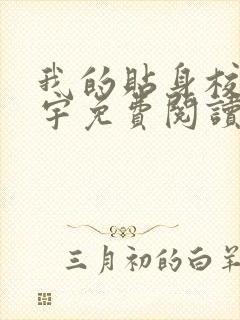 我的貼身校
字免費閱讀
三月初的白羊